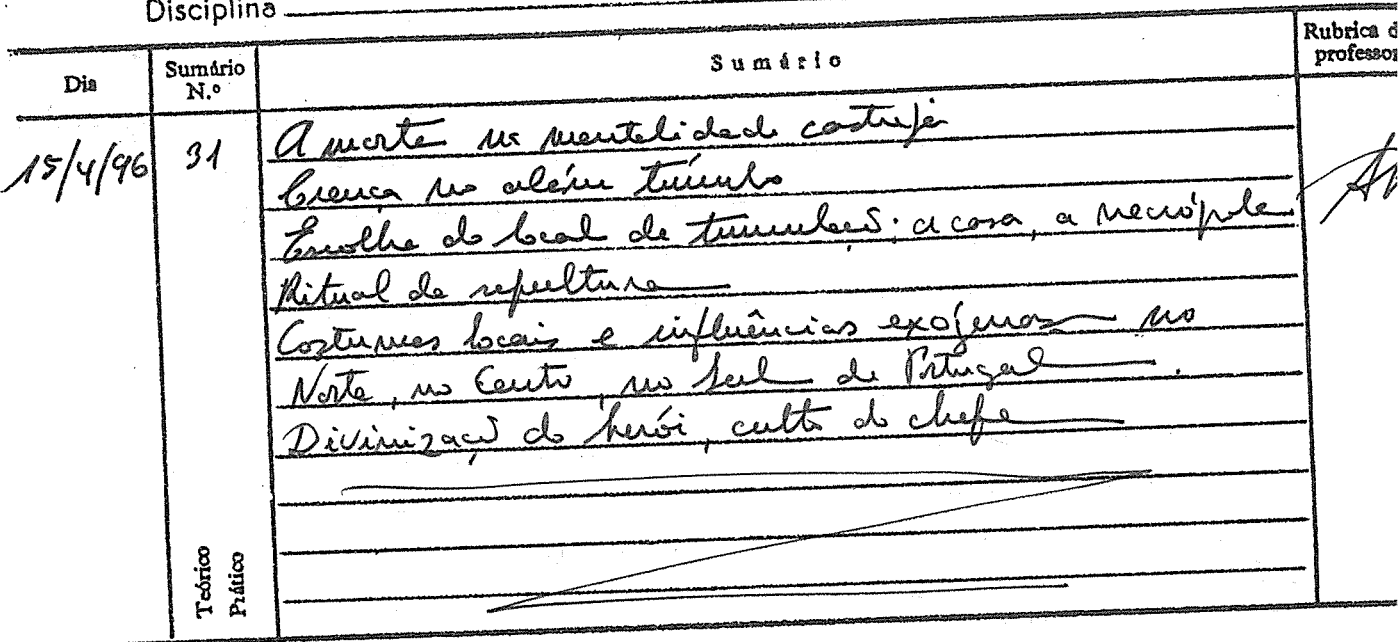 Disciplina
Dia
Sumário N.º
Sumário
Rubrica d
professor
15/4/96
31
A morte na mentalidade casteja
Crença no além túmulo
Escolha do local de tumulação: a casa, a necrópole
Ritual de sepultura
Costumes locais e influências exógenas no
Norte, no Centro, no Sul de Portugal.
Divinização do herói, culto do chefe
Teórico
Prático